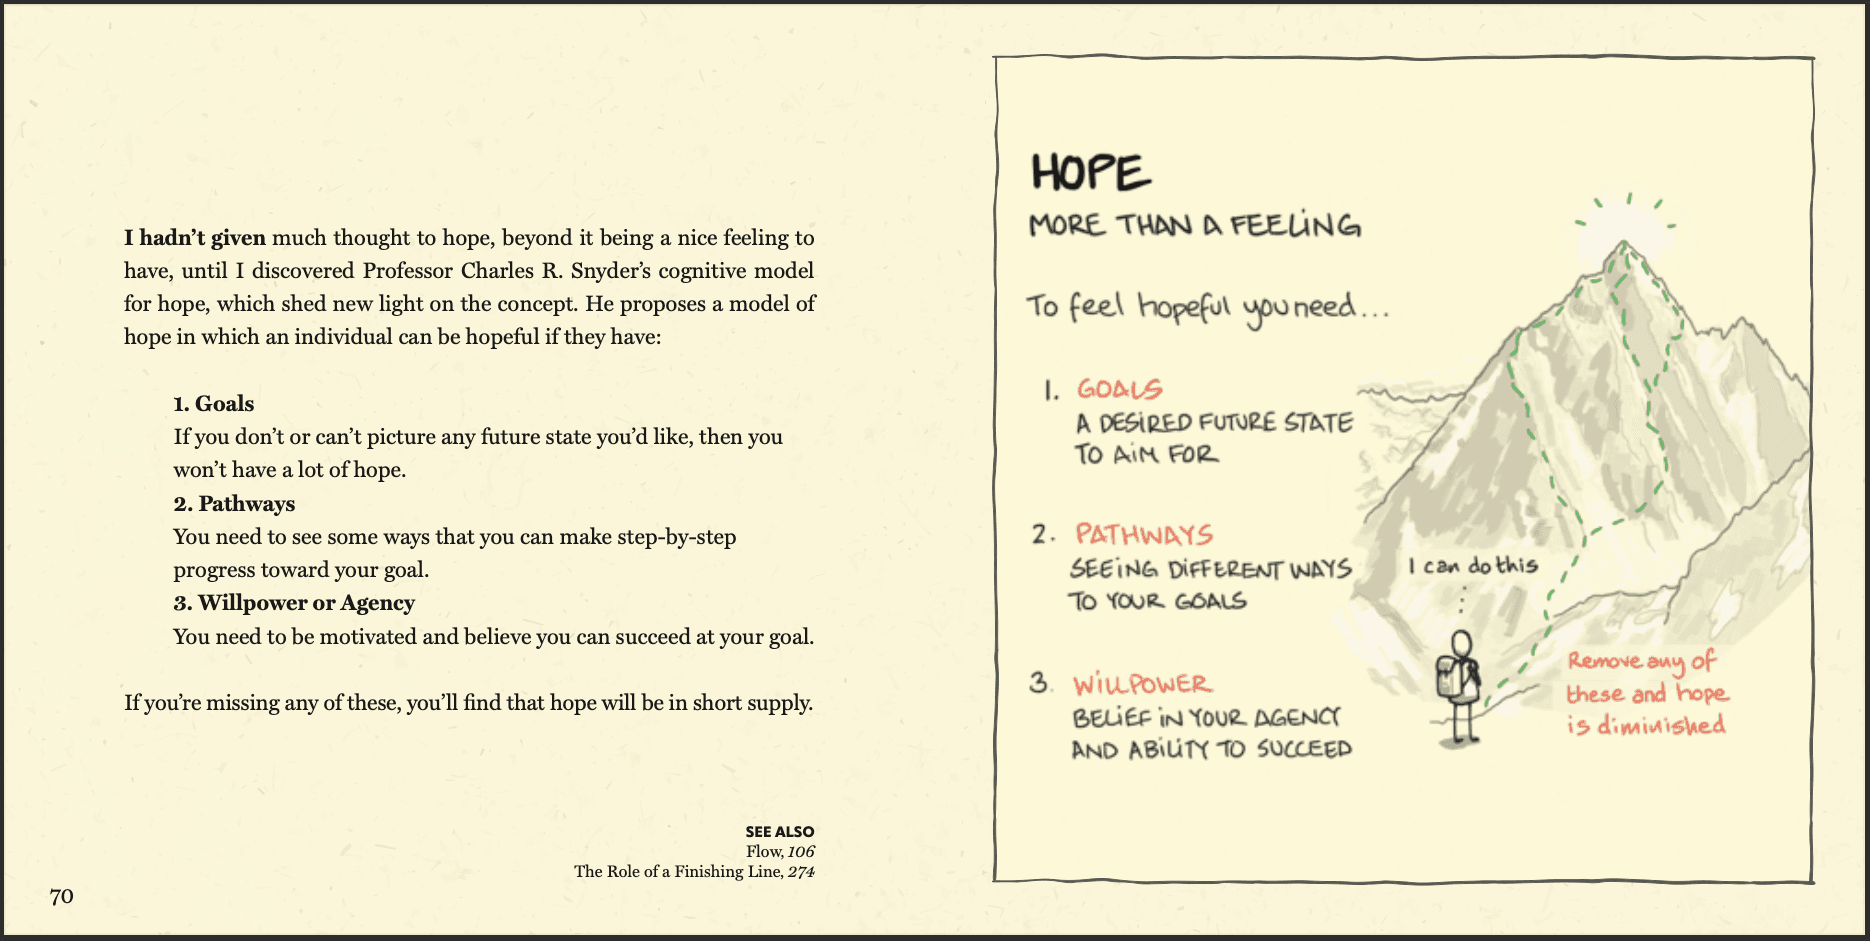 I hadn’t given much thought to hope, beyond it being a nice feeling to
have, until I discovered Professor Charles R. Snyder’s cognitive model
for hope, which shed new light on the concept. He proposes a model of
hope in which an individual can be hopeful if they have:
1. Goals
If you don’t or can’t picture any future state you’d like, then you
won’t have a lot of hope.
2. Pathways
You need to see some ways that you can make step-by-step
progress toward your goal.
3. Willpower or Agency
You need to be motivated and believe you can succeed at your goal.
If you’re missing any of these, you’ll find that hope will be in short supply.
SEE ALSO
Flow, 106
The Role of a Finishing Line, 274
70
HOPE
MORE THAN A FEELING
To feel hopeful you need...
1. GOALS
A DESIRED FUTURE STATE
TO AIM FOR
2. PATHWAYS
SEEING DIFFERENT WAYS
TO YOUR GOALS
3. WILLPOWER
BELIEF IN YOUR AGENCY
AND ABILITY TO SUCCEED
I can do this
Remove any of
these and hope
is diminished